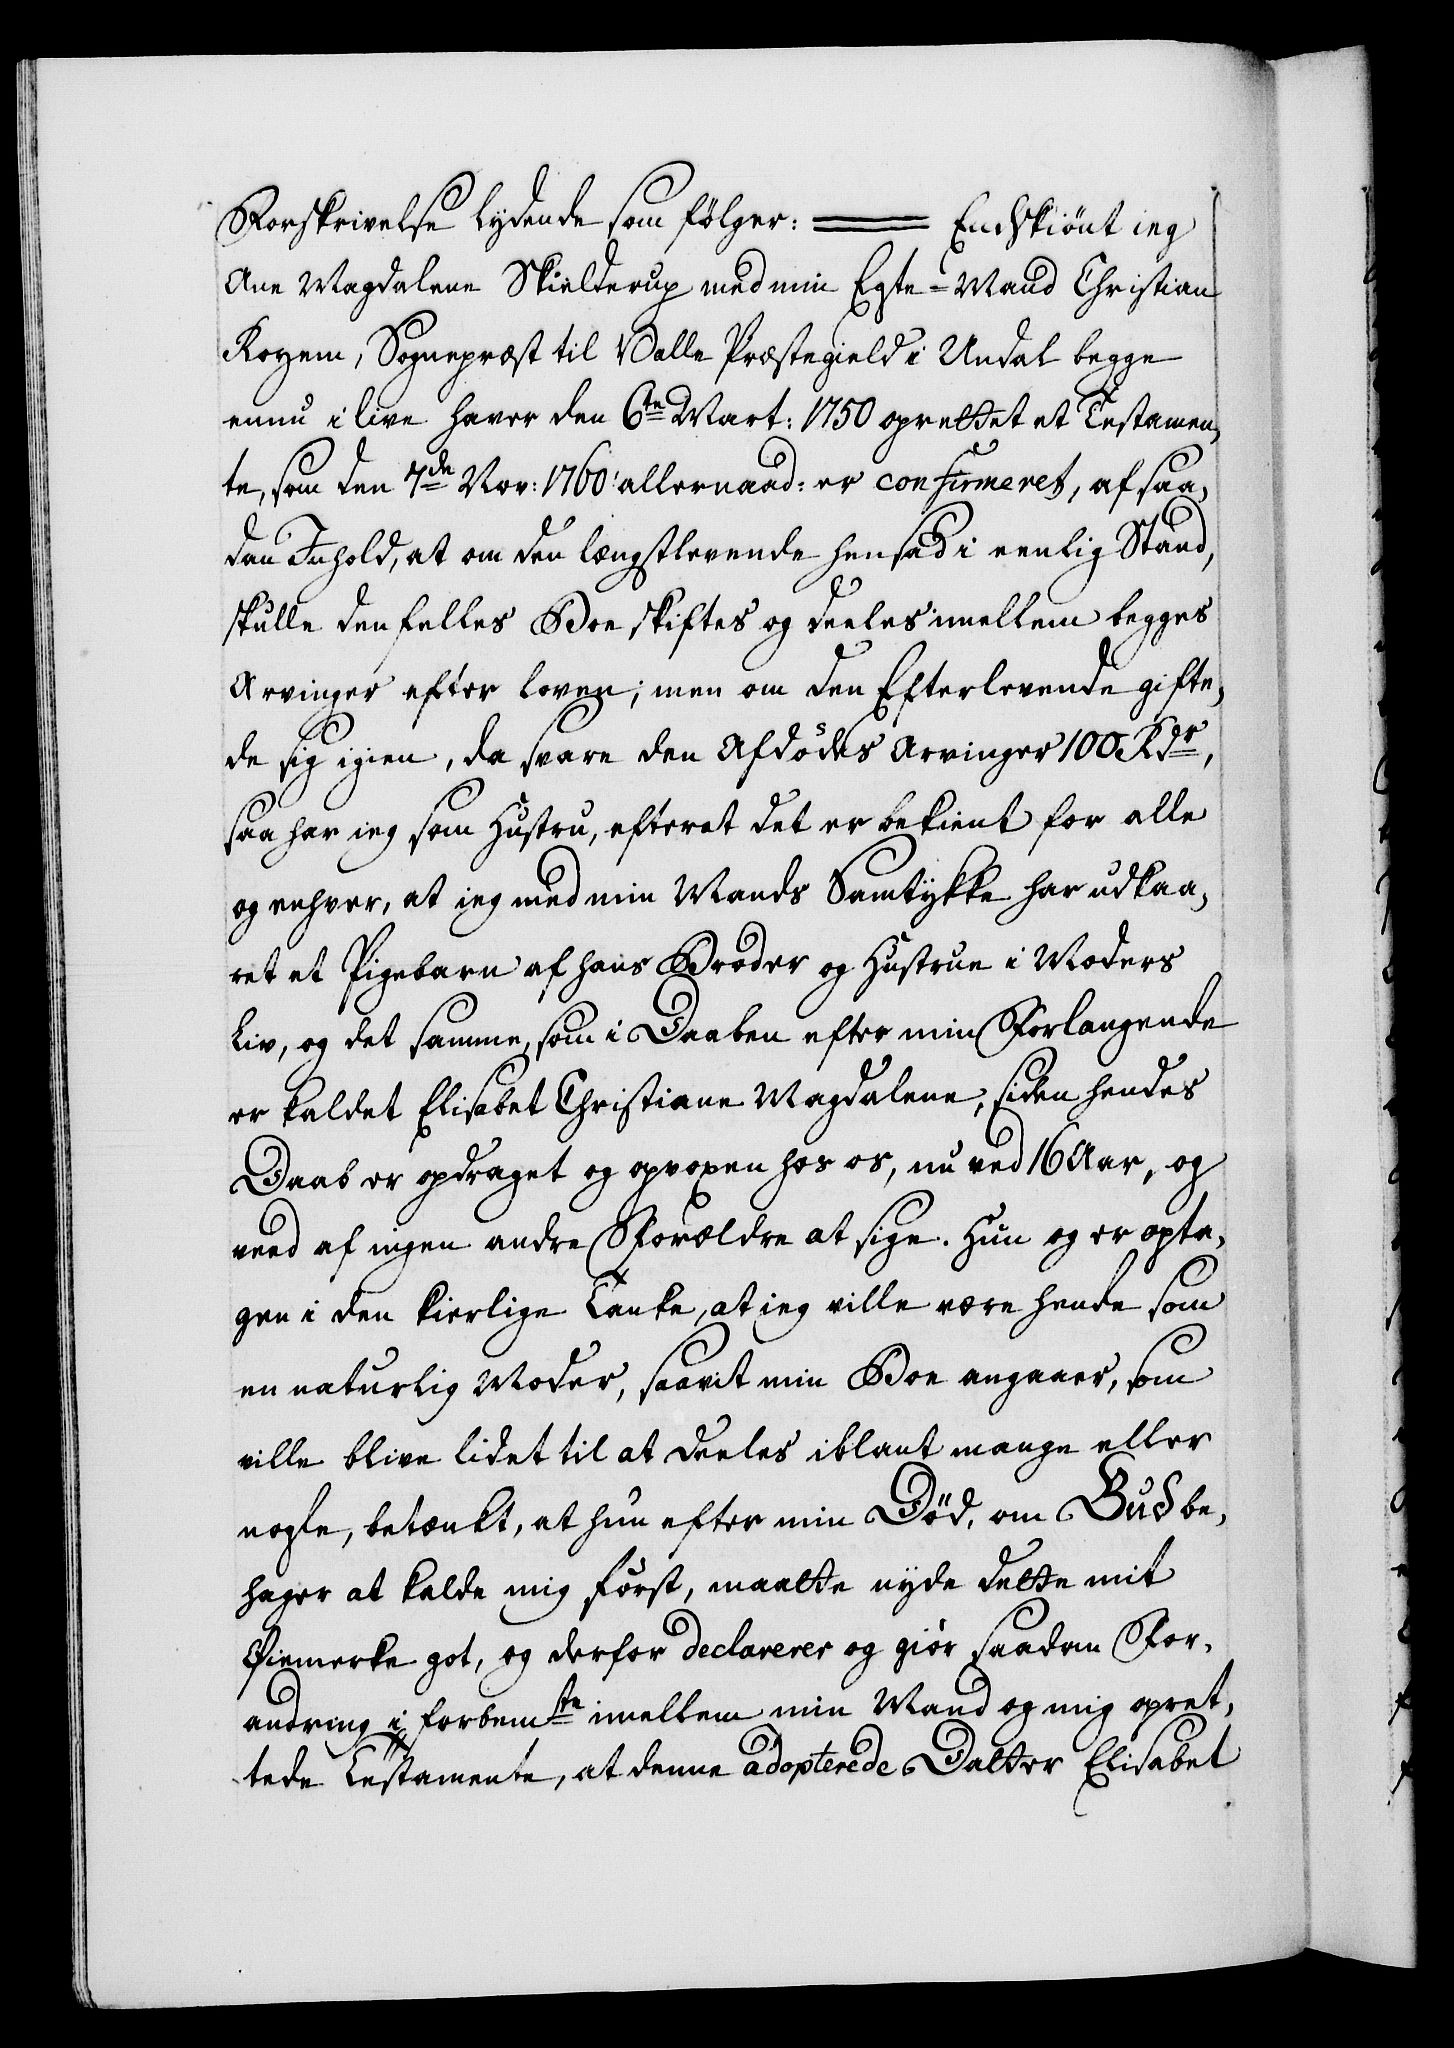 Forskrivelse lydende som følger: ═══ Endskiønt ieg
Ane Magdalene Skielderup med min Egte-Mand Christian
Koren, Sognepræst til Valle Præstegield i Undal begge
ennu i live haver den 6te Mart: 1750 oprettet et Testamen,
te, som den 7de Nov: 1760 allernaad: er confirmeret, af saa,
dan Inhold, at om den længstlevende hensad i eenlig Stand,
skulle den felles Boe skiftes og deeles imellem begges
Arvinger efter loven; men om den Efterlevende gifte,
de sig igien, da svare den Afdødes Arvinger 100 Rdr,
saa har ieg som Hustru, efterat det er bekient for alle
og enhver, at ieg med min Mands Samtykke har udkaa,
ret et Pigebarn af hans Broder og Hustrue i Moders
Liv, og det samme, som i Daaben efter min Forlangende
er kaldet Elisabet Christiane Magdalene, siden hendes
Daab er opdraget og opvoxen hos os, nu ved 16 Aar, og
veed af ingen andre Forældre at sige. Hun og er opta,
gen i den kierlige Tanke, at ieg ville være hende som
en naturlig Moder, saavit min Boe angaaer, som
ville blive lidet til at deeles iblant mange eller
nogle, betænkt, at hun efter min Død, om Gud be,
hager at kalde mig først, maatte nyde dette mit
Øiemerke got, og derfor declarerer og giør saadan For,
andring i forbemte imellem min Mand og mig opret,
tede Testamente, at denne adopterede Datter Elisabet